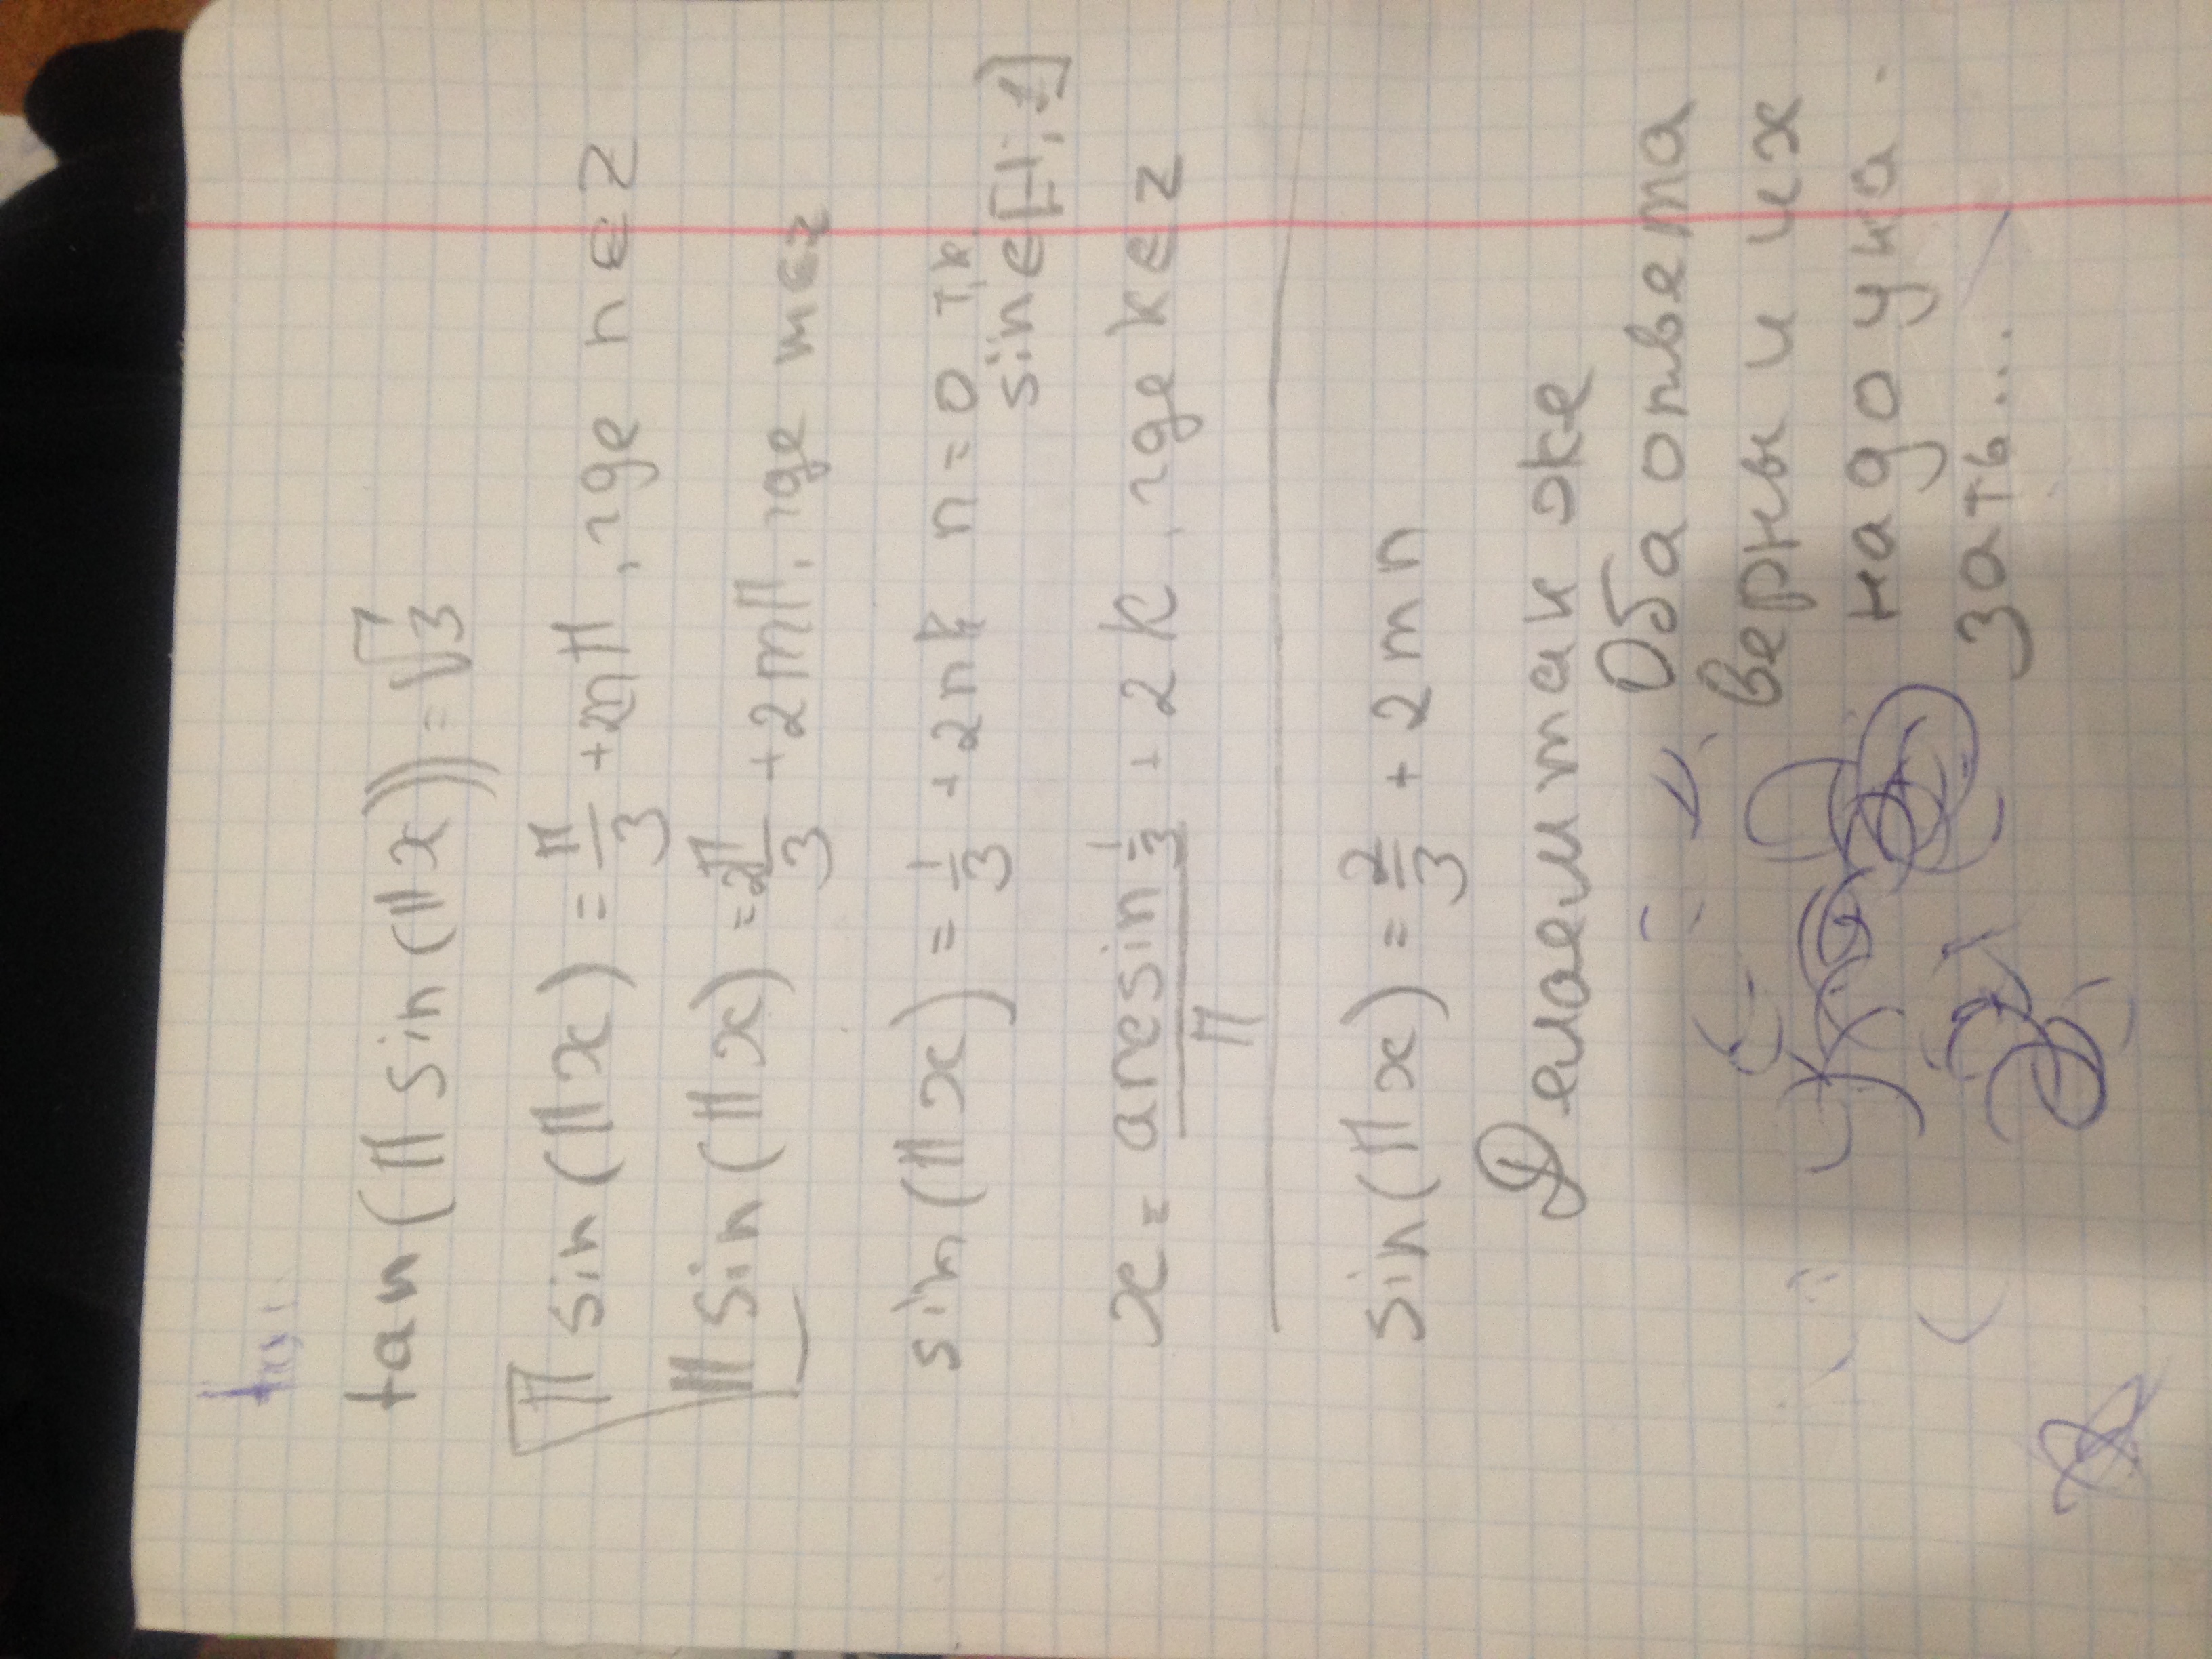 tan(π sin(πx)) = √3
π sin(πx) = π/3 + 2πn, где n ∈ Z
π sin(πx) = 2π/3 + 2mπ, где m ∈ Z
sin(πx) = 1/3 + 2n n = 0 т.к.
sin ∈ [-1; 1]
x = arcsin 1/3 / π + 2k, где k ∈ Z
sin(πx) = 2/3 + 2mn
Делаем так же
Оба ответа
верны и их
надо ука.
зать...